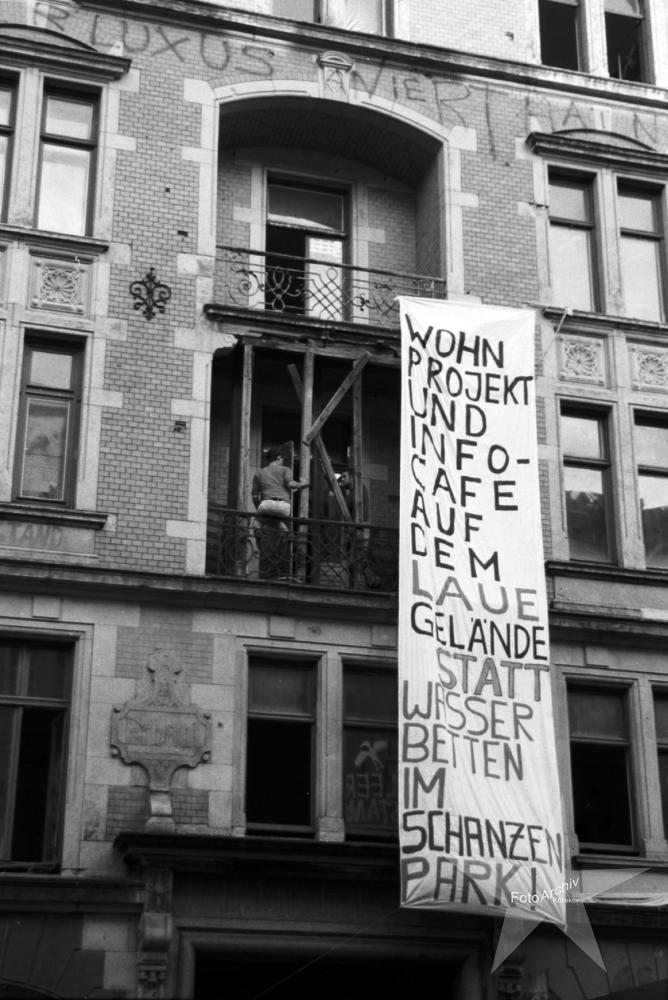 LUXUS
WOHN
PROJEKT
UND
INFO-
CAFE
AUF
DEM
LAUE
GELÄNDE
STATT
WASSER
BETTEN
IM
SCHANZEN
PARK!
FotoArchiv
Kollektiv